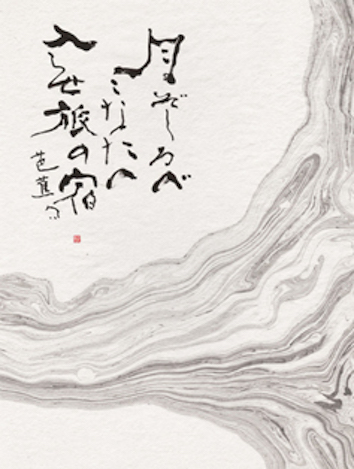 月ぞしるべ
こなたへ
入らせ旅の宿
芭蕉